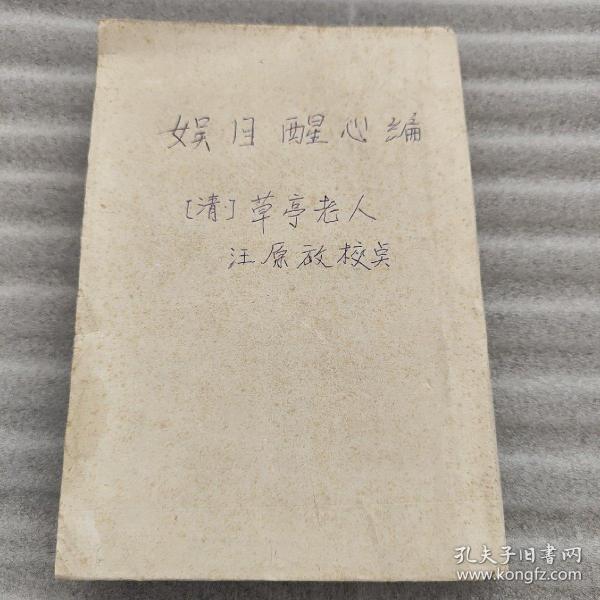 娱目醒心编
[清]草亭老人
汪原放校点
孔夫子旧書网
www.kongfz.com